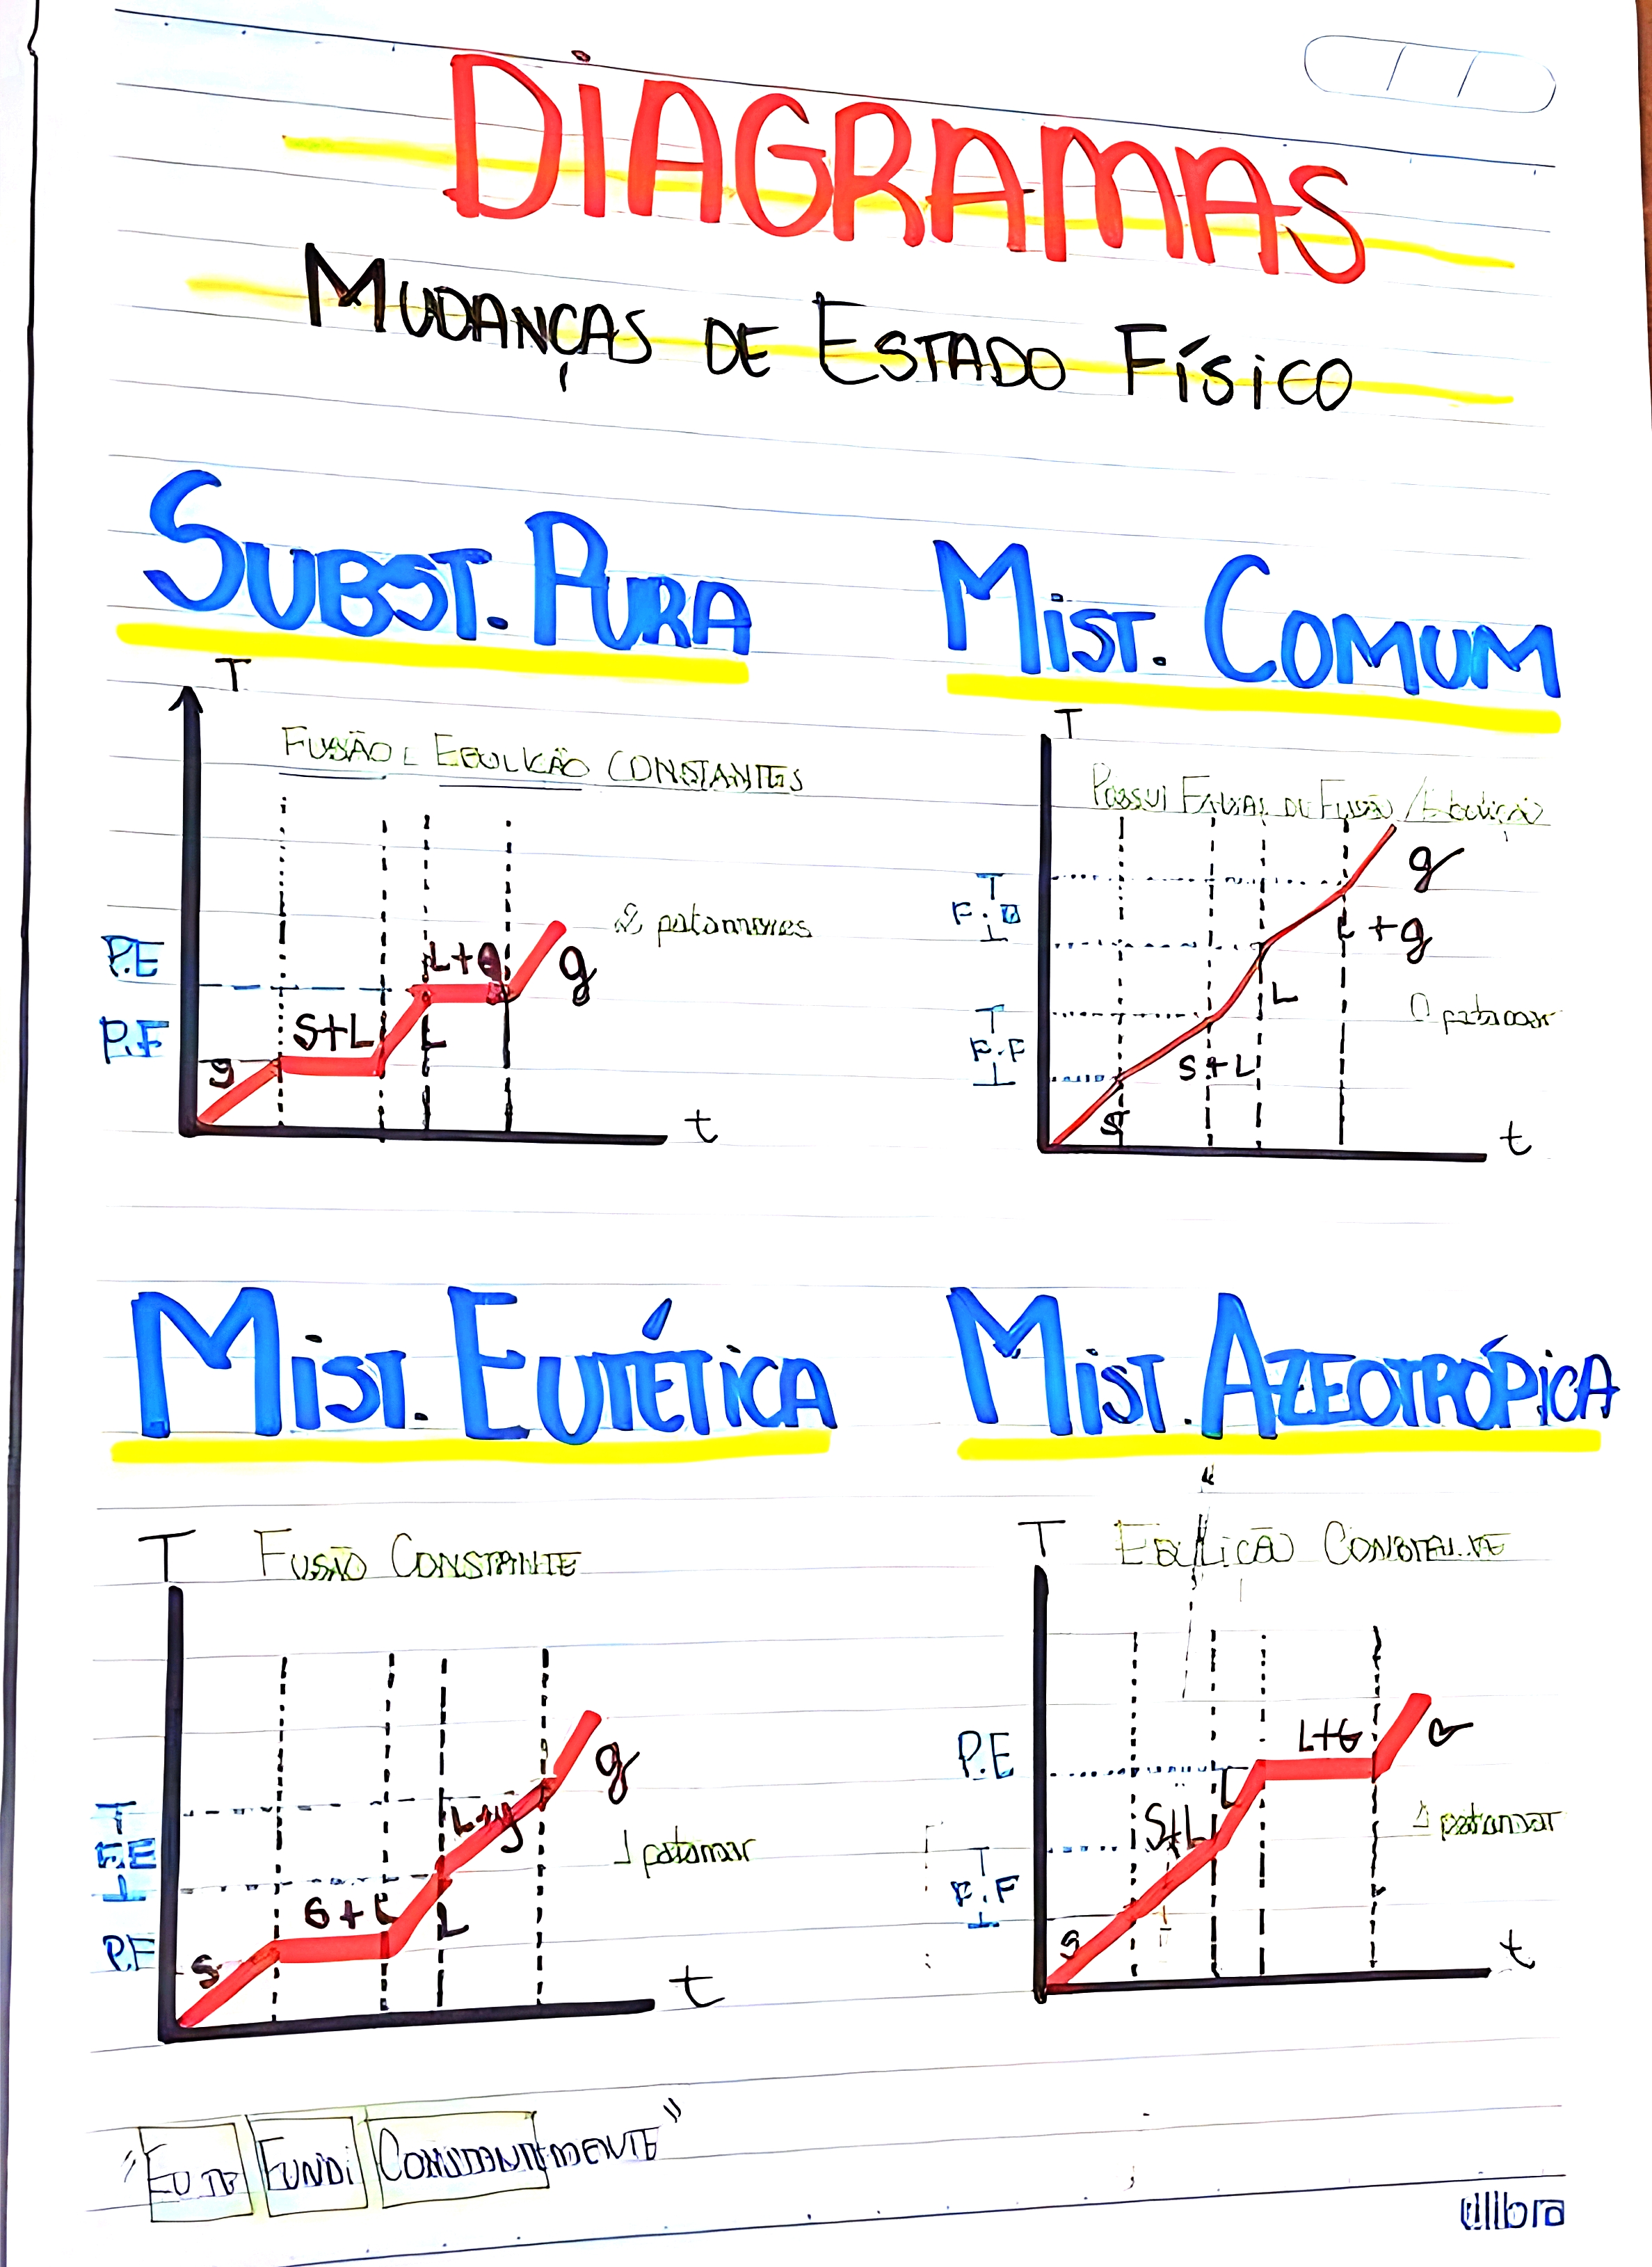 DIAGRAMAS
MUDANÇAS DE ESTADO FÍSICO
SUBST. PURA
T
FUSÃO E EBULIÇÃO CONSTANTES
2 patamares
P.E
L+G
g
P.F
S+L
L
S
t
MIST. COMUM
T
POSSUI FAIXAS DE FUSÃO / Ebulição
g
F.E
L+g
L
0 patamar
F.F
S+L
S
t
MIST. EUTÉTICA
T FUSÃO CONSTANTE
g
L+g
F.E
1 patamar
S+L
L
P.F
S
t
MIST. AZEOTRÓPICA
T EBULIÇÃO CONSTANTE
L+G
G
P.E
L
S+L
1 patamar
F.F
S
t
"EU TE FUNDI CONSTANTEMENTE"
tilibra